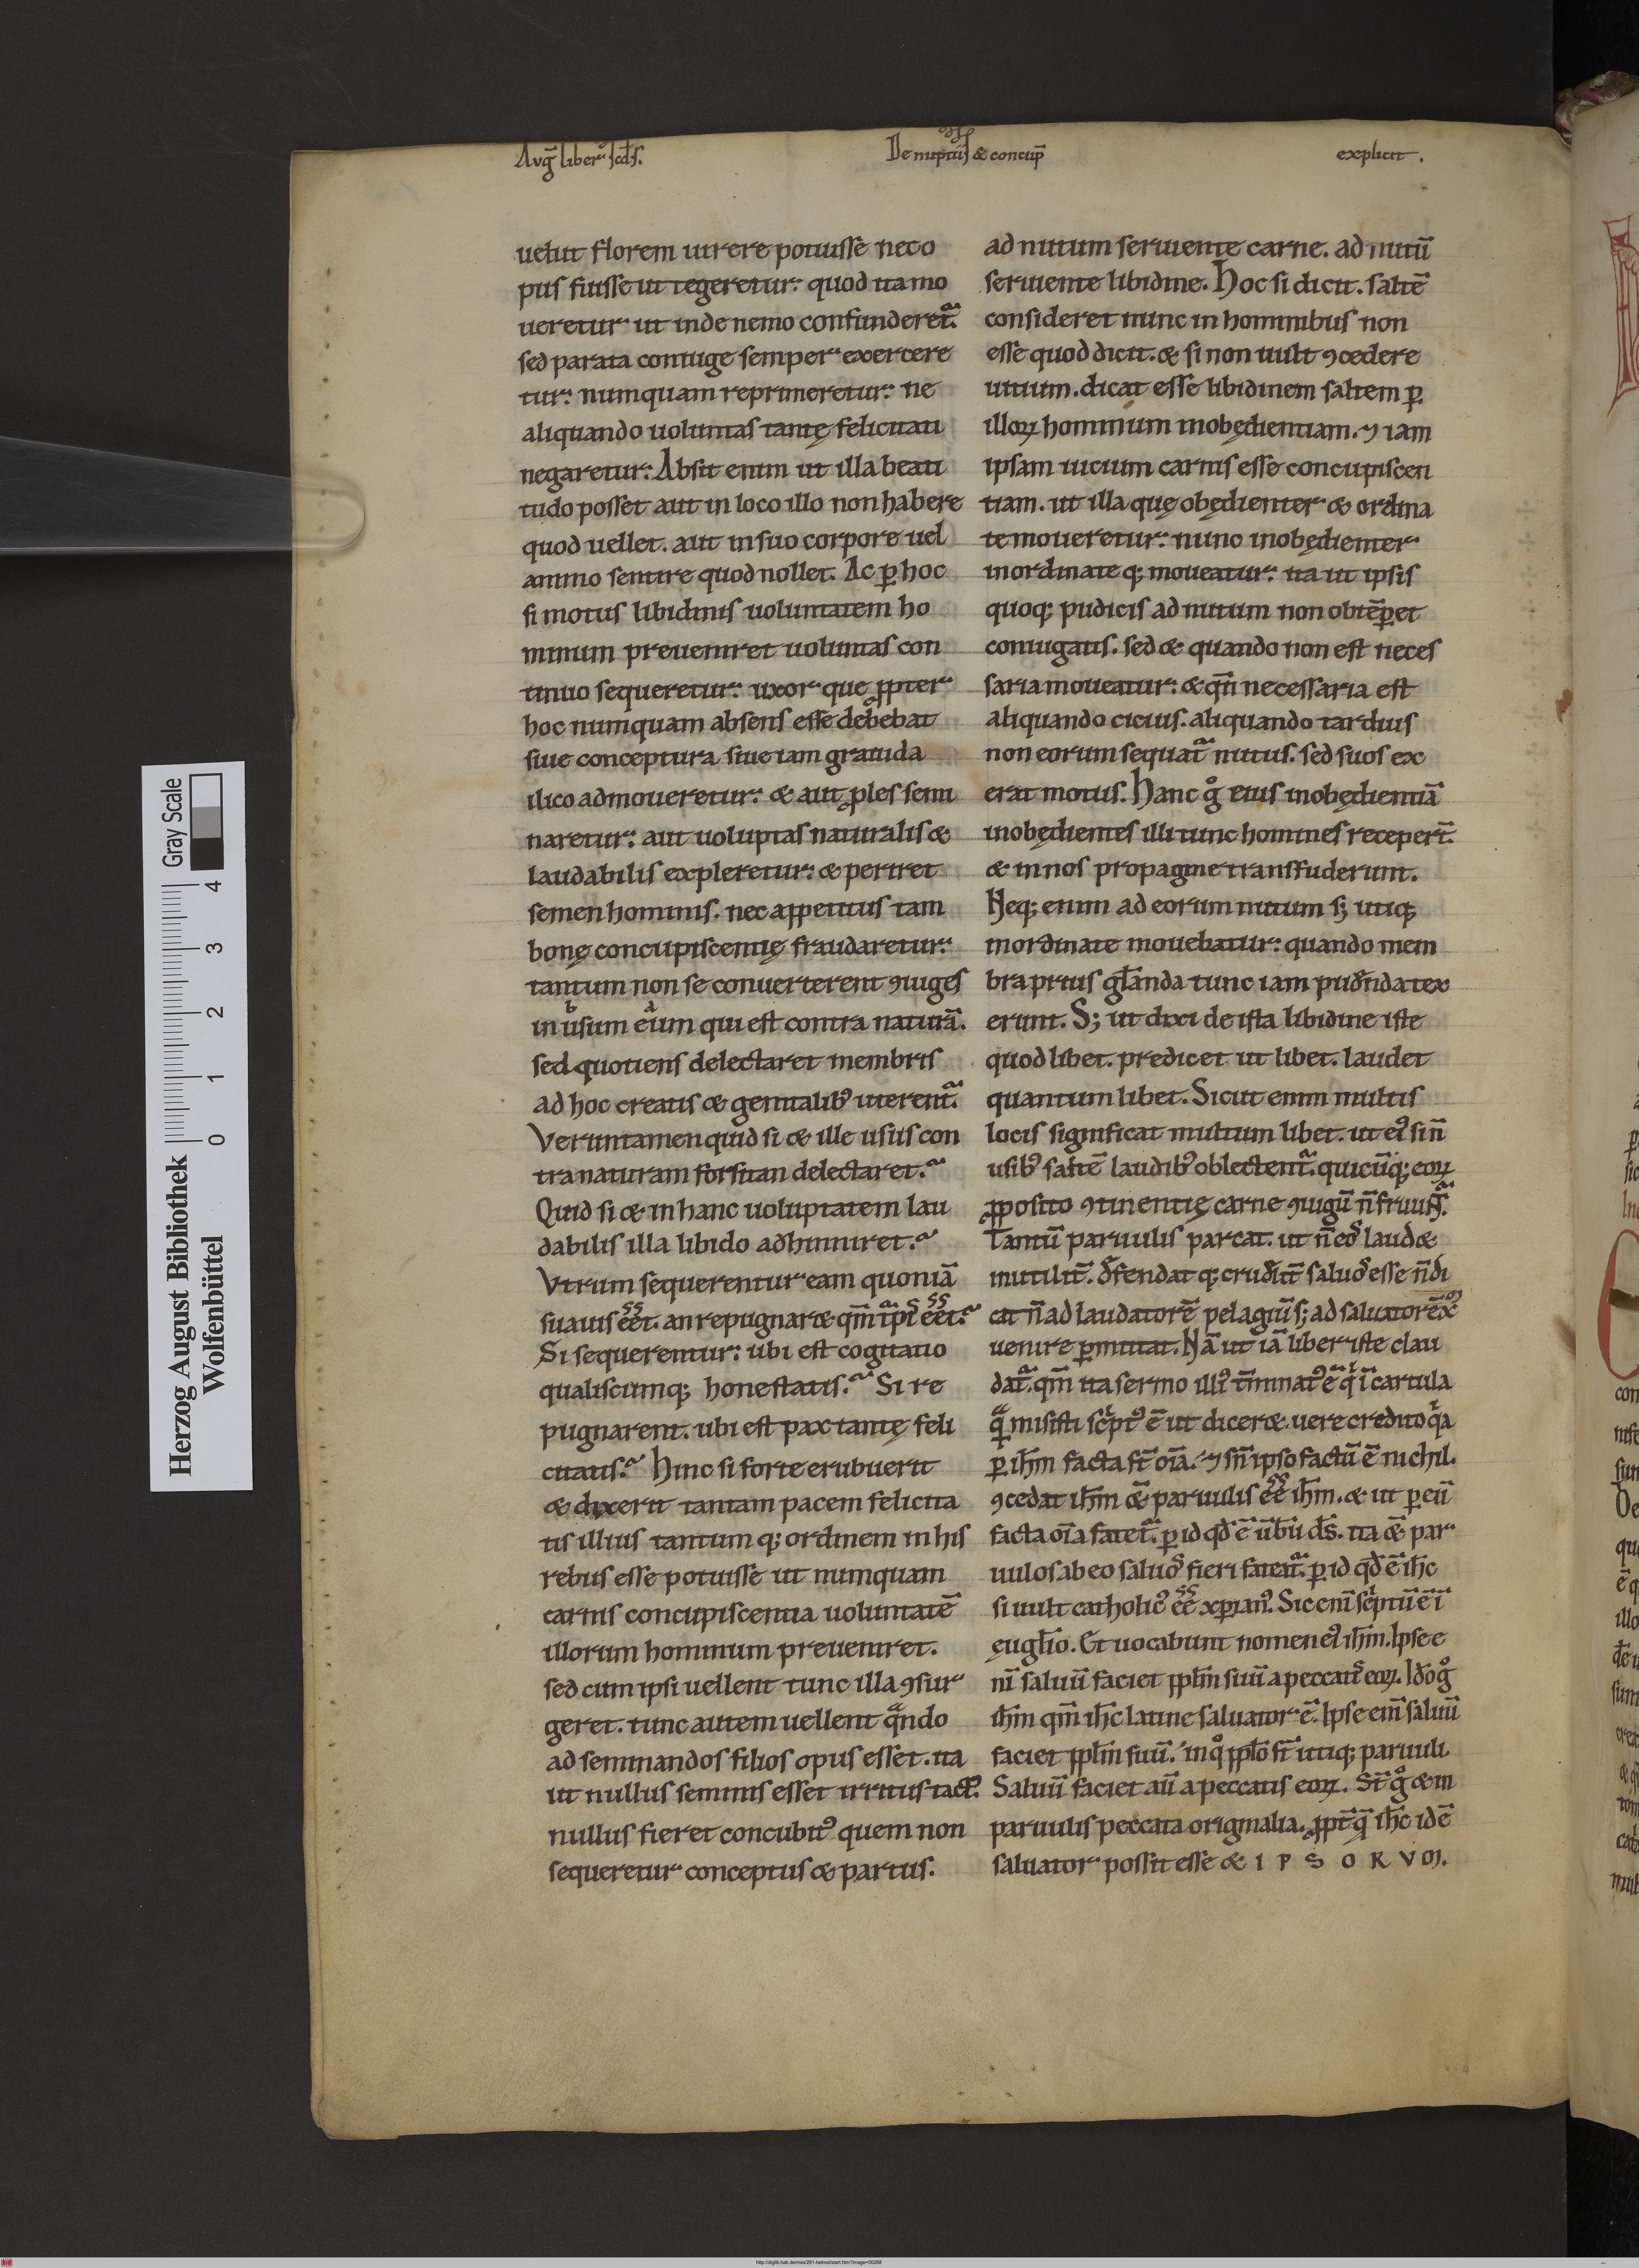 Avḡ liber scd̄s.
De nuptiis & concup̄
explicit.
uelut florem uirere potuisse nec o
pus fuisse ut tegeretur: quod ita mo
ueretur ut inde nemo confunderetᷓ.
sed parata coniuge semper exercere
tur: numquam reprimeretur: ne
aliquando uoluntas tantę felicitati
negaretur: Absit enim ut illa beati
tudo posset aut in loco illo non habere
quod uellet. aut in suo corpore uel
animo sentire quod nollet. Ac ꝑ hoc
si motus libidinis uoluntatem ho
minum preueniret uoluntas con
tinuo sequeretur: uxor que ꝓpter
hoc numquam absens esse debebat
siue conceptura siue iam grauida
ilico admoueretur: & aut ꝓles semi
naretur: aut uoluptas naturalis &
laudabilis expleretur: & periret
semen hominis. nec appetitus tam
bonę concupiscentię fraudaretur:
tantum non se conuerterent ꝯiuges
in usum eum qui est contra naturā.
sed quotiens delectaret membris
ad hoc creatis & genitalibꝰ uterentᷓ.
Veruntamen quid si & ille usus con
tra naturam forsitan delectaret.
Quid si & in hanc uoluptatem lau
dabilis illa libido adhinniret.
Vtrum sequerentur eam quoniā
suauis eēt. an repugnar& qm̄ tᷓpis eēt.
Si sequerentur: ubi est cogitatio
qualiscumq; honestatis. Si re
pugnarent. ubi est pax tantę feli
citatis. Hinc si forte erubuerit
& dixerit tantam pacem felicita
tis illius tantum q; ordinem in his
rebus esse potuisse ut numquam
carnis concupiscentia uoluntatē
illorum hominum preueniret.
sed cum ipsi uellent tunc illa ꝯsur
geret. tunc autem uellent qᷓndo
ad seminandos filios opus esset. ita
ut nullus seminis esset irritus iactꝰ.
nullus fieret concubitꝰ quem non
sequeretur conceptus & partus.
ad nutum seruiente carne. ad nutū
seruiente libidine. Hoc si dicit. saltē
consideret nunc in hominibus non
esse quod dicit. & si non uult ꝯcedere
uitium. dicat esse libidinem saltem ꝑ
illoꝝ hominum inobędientiam. ⁊ iam
ipsam uicium carnis esse concupiscen
tiam. ut illa quę obędienter & ordina
te moueretur: nunc inobędienter
inordinate q; moueatur: ita ut ipsis
quoq; pudicis ad nutum non obtēꝑet
coniugatis. sed & quando non est neces
saria moueatur: & qn̄ necessaria est
aliquando cicius. aliquando tardius
non eorum sequatᷓ nutus. sed suos ex
erat motus. Hanc gͦ eius inobędientiā
inobędientes illi tunc homines receper̄t.
& in nos propagine transfuderunt.
Neq; enim ad eorum nutum s; utiq;
inordinate mouebatur: quando mem
bra prius gl̄anda tunc iam pudn̄da tex
erunt. S; ut dixi de ista libidine iste
quod libet. predicet ut libet. laudet
quantum libet. Sicut enim multis
locis significat multum libet. ut eiꝰ si n̄
usibꝰ saltē laudibꝰ oblectentᷓ. quicūq; eoꝝ
ꝓposito ꝯtinentię carne ꝯiugū n̄ fruuntᷓ.
Tantū paruulis parcat. ut n̄ eos laud&
inutilit̄. defendat q; crudelit̄ saluos esse n̄ di
cat n̄ ad laudatorē pelagiū s; ad saluatorē x̄
uenire ꝑmittat. Nā ut iā liber iste clau
datᷓ. qm̄ ita sermo illiꝰ t̄minatꝰ ē qͥ ī cartula
qᷓ misisti sc̄ptꝰ ē ut dicer& uere credito qͥa
ꝑ ih̄m facta st̄ oīa. ⁊ sn̄ ipso factū ē nichil.
ꝯcedat ih̄m & paruulis eē ih̄m. & ut ꝑ eū
facta oīa fatetᷓ. ꝑ id qd̄ ē ūbū ds̄. ita & par
uulos ab eo saluos fieri fateatᷓ. ꝑ id qd̄ ē ih̄c
si uult catholicꝰ eē xp̄ianꝰ. Sic enī sc̄ptū ē ī
ęugl̄io. Et uocabunt nomen eiꝰ ih̄m. Ipse e
nī saluū faciet ppl̄m suū a peccatis eoꝝ. Ido gͦ
ih̄m qm̄ ih̄c latine saluator ē. Ipse enī saluū
faciet ppl̄m suū. in qͦ ppl̄o st̄ utiq; paruuli.
Saluū faciet aū a peccatis eoꝝ. St̄ gͦ & in
paruulis peccata originalia. ꝓpt̄ qᷓ ih̄c idē
saluator possit esse & I P S O R V M.
Herzog August Bibliothek
Wolfenbüttel
Gray Scale
0 1 2 3 4
http://diglib.hab.de/mss/281-helmst/start.htm?image=00268